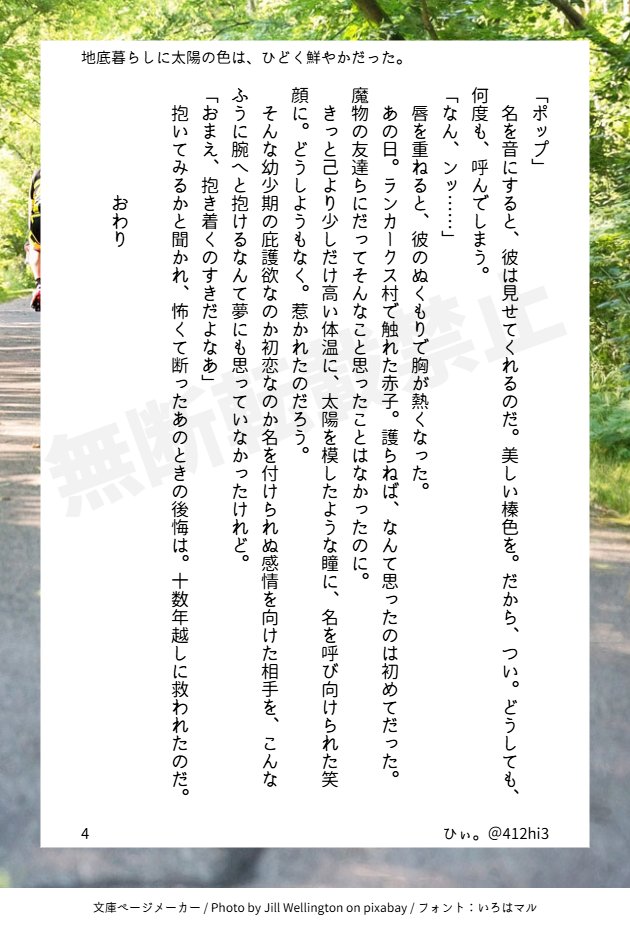 地底暮らしに太陽の色は、ひどく鮮やかだった。
「ポップ」
名を音にすると、彼は見せてくれるのだ。美しい榛色を。だから、つい。どうしても、
何度も、呼んでしまう。
「なん、ンッ……」
唇を重ねると、彼のぬくもりで胸が熱くなった。
あの日。ランカークス村で触れた赤子。護らねば、なんて思ったのは初めてだった。
魔物の友達らにだってそんなこと思ったことはなかったのに。
きっと己より少しだけ高い体温に、太陽を模したような瞳に、名を呼び向けられた笑
顔に。どうしようもなく。惹かれたのだろう。
そんな幼少期の庇護欲なのか初恋なのか名を付けられぬ感情を向けた相手を、こんな
ふうに腕へと抱けるなんて夢にも思っていなかったけれど。
「おまえ、抱き着くのすきだよなあ」
抱いてみるかと聞かれ、怖くて断ったあのときの後悔は。十数年越しに救われたのだ。
おわり
無断転載禁止
4
ひぃ。@412hi3
文庫ページメーカー / Photo by Jill Wellington on pixabay / フォント：いろはマル